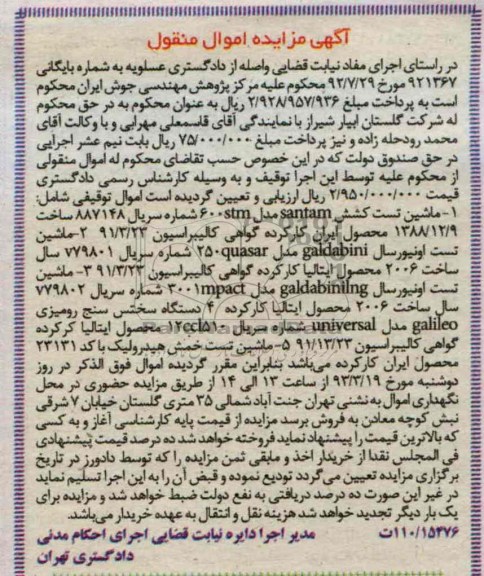 آگهی مزایده اموال منقول
در راستای اجرای مفاد نیابت قضایی واصله از دادگستری عسلویه به شماره بایگانی
۹۲۱۳۶۷ مورخ ۹۲/۷/۲۹ محکوم علیه مرکز پژوهش مهندسی جوش ایران محکوم
است به پرداخت مبلغ ۲/۹۲۸/۹۵۷/۹۳۶ ریال به عنوان محکوم به در حق محکوم
له شرکت گلستان ابیار شیراز با نمایندگی آقای قاسمعلی مهرابی و با وکالت آقای
محمد رودحله زاده و نیز پرداخت مبلغ ۷۵/۰۰۰/۰۰۰ ریال بابت نیم عشر اجرایی
در حق صندوق دولت که در این خصوص حسب تقاضای محکوم له اموال منقولی
از محکوم علیه توسط این اجرا توقیف و به وسیله کارشناس رسمی دادگستری
قیمت ۲/۹۵۰/۰۰۰/۰۰۰ ریال ارزیابی و تعیین گردیده است اموال توقیفی شامل:
۱- ماشین تست کشش santam مدل ۶۰۰stm شماره سریال ۸۸۷۱۴۸ ساخت
۱۳۸۸/۱۲/۹ محصول ایران کارکرده گواهی کالیبراسیون ۹۱/۳/۲۳ ۲-ماشین
تست اونیورسال galdabini مدل ۲۵۰quasar شماره سریال ۷۷۹۸۰۱ سال
ساخت ۲۰۰۶ محصول ایتالیا کارکرده گواهی کالیبراسیون ۹۱/۳/۲۳ ۳- ماشین
تست اونیورسال galdabinilng مدل ۳۰۰ımpact شماره سریال ۷۷۹۸۰۲
سال ساخت ۲۰۰۶ محصول ایتالیا کارکرده ۴ دستگاه سختس سنج رومیزی
galileo مدل universal شماره سریال ۱۲ccl۵۱۰ محصول ایتالیا کرکرده
گواهی کالیبراسیون ۹۱/۱۳/۲۳ ۵- ماشین تست خمش هیدرولیک با کد ۲۳۱۳۱
محصول ایران کارکرده می‌باشد بنابراین مقرر گردیده اموال فوق الذکر در روز
دوشنبه مورخ ۹۳/۳/۱۹ از ساعت ۱۳ الی ۱۴ از طریق مزایده حضوری در محل
نگهداری اموال به نشنی تهران جنت آباد شمالی ۳۵ متری گلستان خیابان ۷ شرقی
نبش کوچه معادن به فروش برسد مزایده از قیمت پایه کارشناسی آغاز و به کسی
که بالاترین قیمت را پیشنهاد نماید فروخته خواهد شد ده درصد قیمت پیشنهادی
فی المجلس نقدا از خریدار اخذ و مابقی ثمن مزایده را که توسط دادورز در تاریخ
برگزاری مزایده تعیین می‌گردد تودیع نموده و قبض آن را به این اجرا تسلیم نماید
در غیر این صورت ده درصد دریافتی به نفع دولت ضبط خواهد شد و مزایده برای
یک بار دیگر تجدید خواهد شد هزینه نقل و انتقال به عهده خریدار می‌باشد.
۱۱۰/۱۵۳۷۶ت مدیر اجرا دایره نیابت قضایی اجرای احکام مدنی
دادگستری تهران